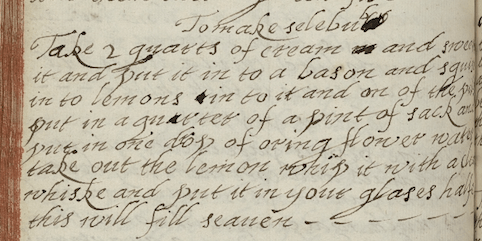 To make selebub
Take 2 quarts of cream and swee
it and put it in to a bason and squ
in to lemons in to it and on of the
put in a quarter of a pint of sack an
put in one drop of oring flower wat
take out the lemon whip it with a
whiske and put it in your glases half
this will fill seaven